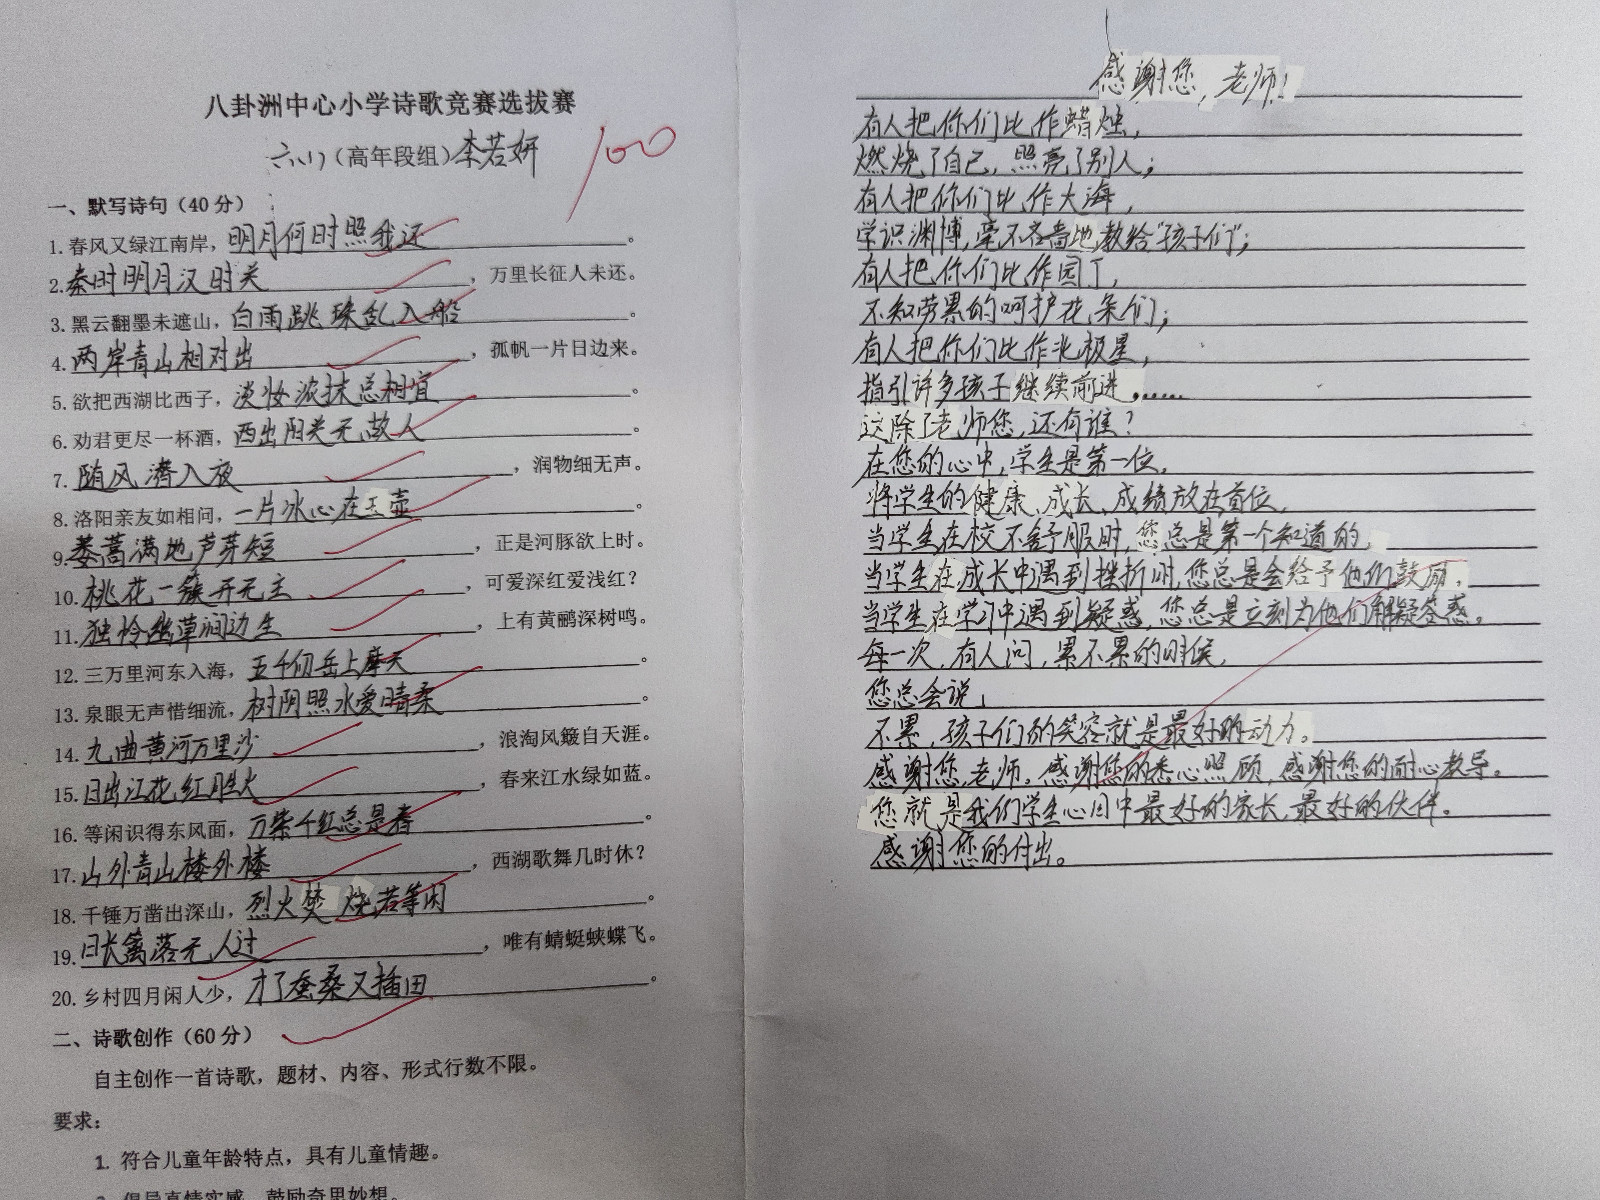 八卦洲中心小学诗歌竞赛选拔赛
六(1)（高年段组）李若妍
100
一、默写诗句（40分）
1.春风又绿江南岸，明月何时照我还。
2.秦时明月汉时关，万里长征人未还。
3.黑云翻墨未遮山，白雨跳珠乱入船。
4.两岸青山相对出，孤帆一片日边来。
5.欲把西湖比西子，淡妆浓抹总相宜。
6.劝君更尽一杯酒，西出阳关无故人。
7.随风潜入夜，润物细无声。
8.洛阳亲友如相问，一片冰心在玉壶。
9.蒌蒿满地芦芽短，正是河豚欲上时。
10.桃花一簇开无主，可爱深红爱浅红？
11.独怜幽草涧边生，上有黄鹂深树鸣。
12.三万里河东入海，五千仞岳上摩天。
13.泉眼无声惜细流，树阴照水爱晴柔。
14.九曲黄河万里沙，浪淘风簸自天涯。
15.日出江花红胜火，春来江水绿如蓝。
16.等闲识得东风面，万紫千红总是春。
17.山外青山楼外楼，西湖歌舞几时休？
18.千锤万凿出深山，烈火焚烧若等闲。
19.日长篱落无人过，唯有蜻蜓蛱蝶飞。
20.乡村四月闲人少，才了蚕桑又插田。
二、诗歌创作（60分）
自主创作一首诗歌，题材、内容、形式行数不限。
要求：
1. 符合儿童年龄特点，具有儿童情趣。
2. 倡导真情实感，鼓励奇思妙想。
感谢您，老师！
有人把你们比作蜡烛，
燃烧了自己，照亮了别人；
有人把你们比作大海，
学识渊博，毫不吝啬地教给“孩子们”；
有人把你们比作园丁，
不知劳累的呵护花朵们；
有人把你们比作北极星，
指引许多孩子继续前进，……
这除了老师您，还有谁？
在您的心中，学生是第一位，
将学生的健康、成长、成绩放在首位，
当学生在校不舒服时，您总是第一个知道的，
当学生在成长中遇到挫折时，您总是会给予他们鼓励，
当学生在学习中遇到疑惑，您总是立刻为他们解疑答惑。
每一次，有人问，累不累的时候，
您总会说，
不累，孩子们的笑容就是最好的动力。
感谢您，老师。感谢您的悉心照顾，感谢您的耐心教导。
您就是我们学生心目中最好的家长，最好的伙伴。
感谢您的付出。